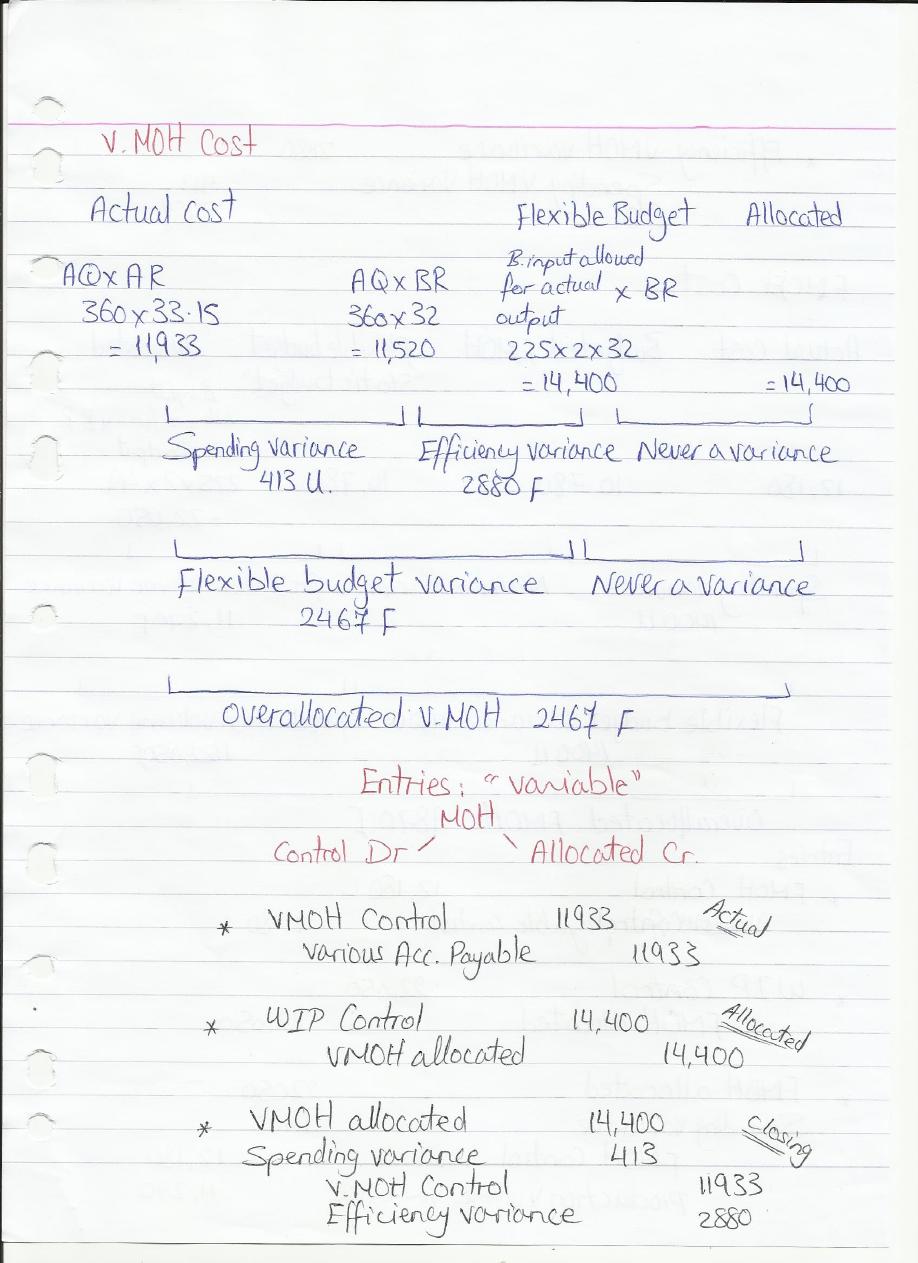 V. MOH Cost
Actual cost Flexible Budget Allocated
AQ x AR AQ x BR B. input allowed for actual output x BR
360 x 33.15 360 x 32 225 x 2 x 32
= 11,933 = 11,520 = 14,400 = 14,400
Spending variance Efficiency variance Never a variance
413 U. 2880 F
Flexible budget variance Never a variance
2467 F
Overallocated V.MOH 2467 F
Entries: "variable"
MOH
Control Dr Allocated Cr.
* VMOH Control 11933 Actual
Various Acc. Payable 11933
* WIP Control 14,400 Allocated
VMOH allocated 14,400
* VMOH allocated 14,400 Closing
Spending variance 413
V.MOH Control 11933
Efficiency variance 2880